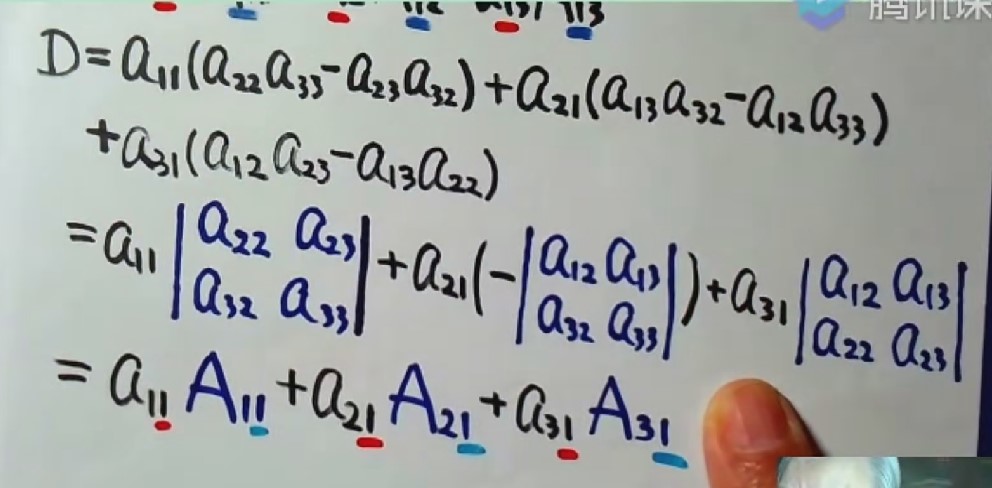 腾讯课
D=a₁₁(a₂₂a₃₃-a₂₃a₃₂)+a₂₁(a₁₃a₃₂-a₁₂a₃₃)
+a₃₁(a₁₂a₂₃-a₁₃a₂₂)
=a₁₁|a₂₂ a₂₃|+a₂₁(-|a₁₂ a₁₃|)+a₃₁|a₁₂ a₁₃|
|a₃₂ a₃₃| |a₃₂ a₃₃| |a₂₂ a₂₃|
=a₁₁A₁₁+a₂₁A₂₁+a₃₁A₃₁